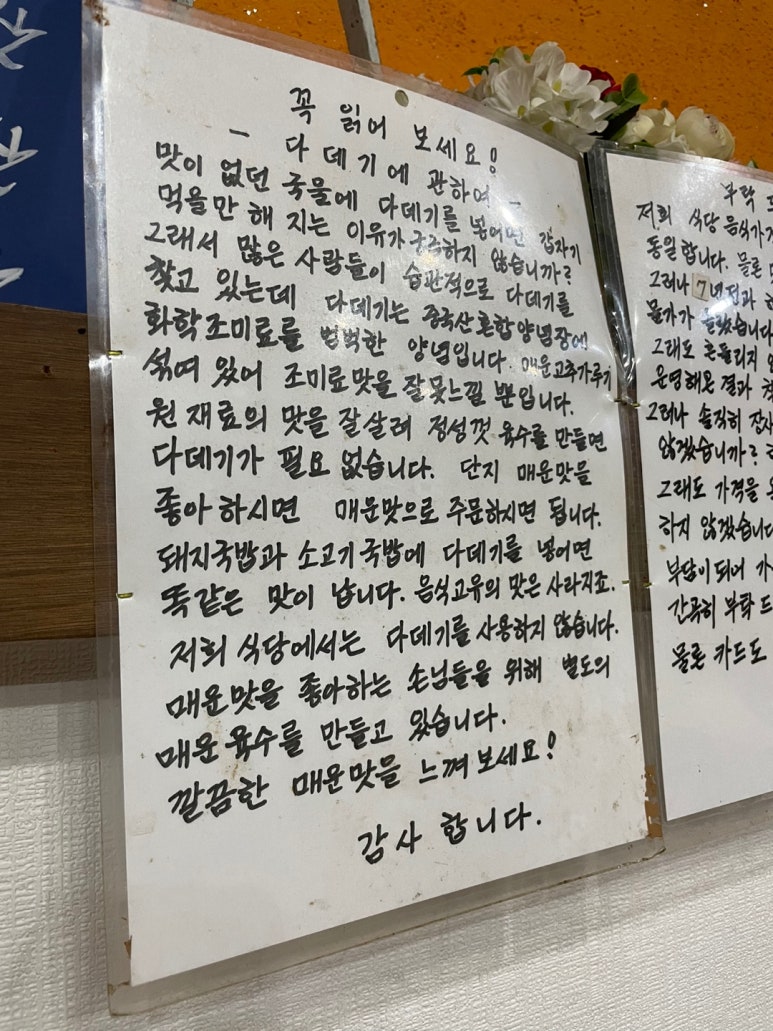 꼭 읽어 보세요!
- 다데기에 관하여 -
맛이 없던 국물에 다데기를 넣어면 갑자기
먹을만 해 지는 이유가 궁주하지 않습니까?
그래서 많은 사람들이 습관적으로 다데기를
찾고 있는데 다데기는 중국산 혼합양념장에
화학조미료를 범벅한 양념입니다. 매운고추가루가
섞여 있어 조미료맛을 잘못느낄 뿐입니다.
원 재료의 맛을 잘살려 정성껏 육수를 만들면
다데기가 필요 없습니다. 단지 매운맛을
좋아 하시면 매운맛으로 주문하시면 됩니다.
돼지국밥과 소고기국밥에 다데기를 넣어면
똑같은 맛이 납니다. 음식고유의 맛은 사라지죠.
저희 식당에서는 다데기를 사용하지 않습니다.
매운맛을 좋아하는 손님들을 위해 별도의
매운육수를 만들고 있습니다.
깔끔한 매운맛을 느껴보세요!
감사 합니다.
부탁
저희 식당 음식가
동일합니다. 물론
그러나 7년전과
물가가 올랐습니다
그래도 흔들리지
운영해온 결과
그러나 솔직히
않겠습니까?
그래도 가격을
하지 않겠습니다
부담이 되어
간곡히 부탁
물론 카드도